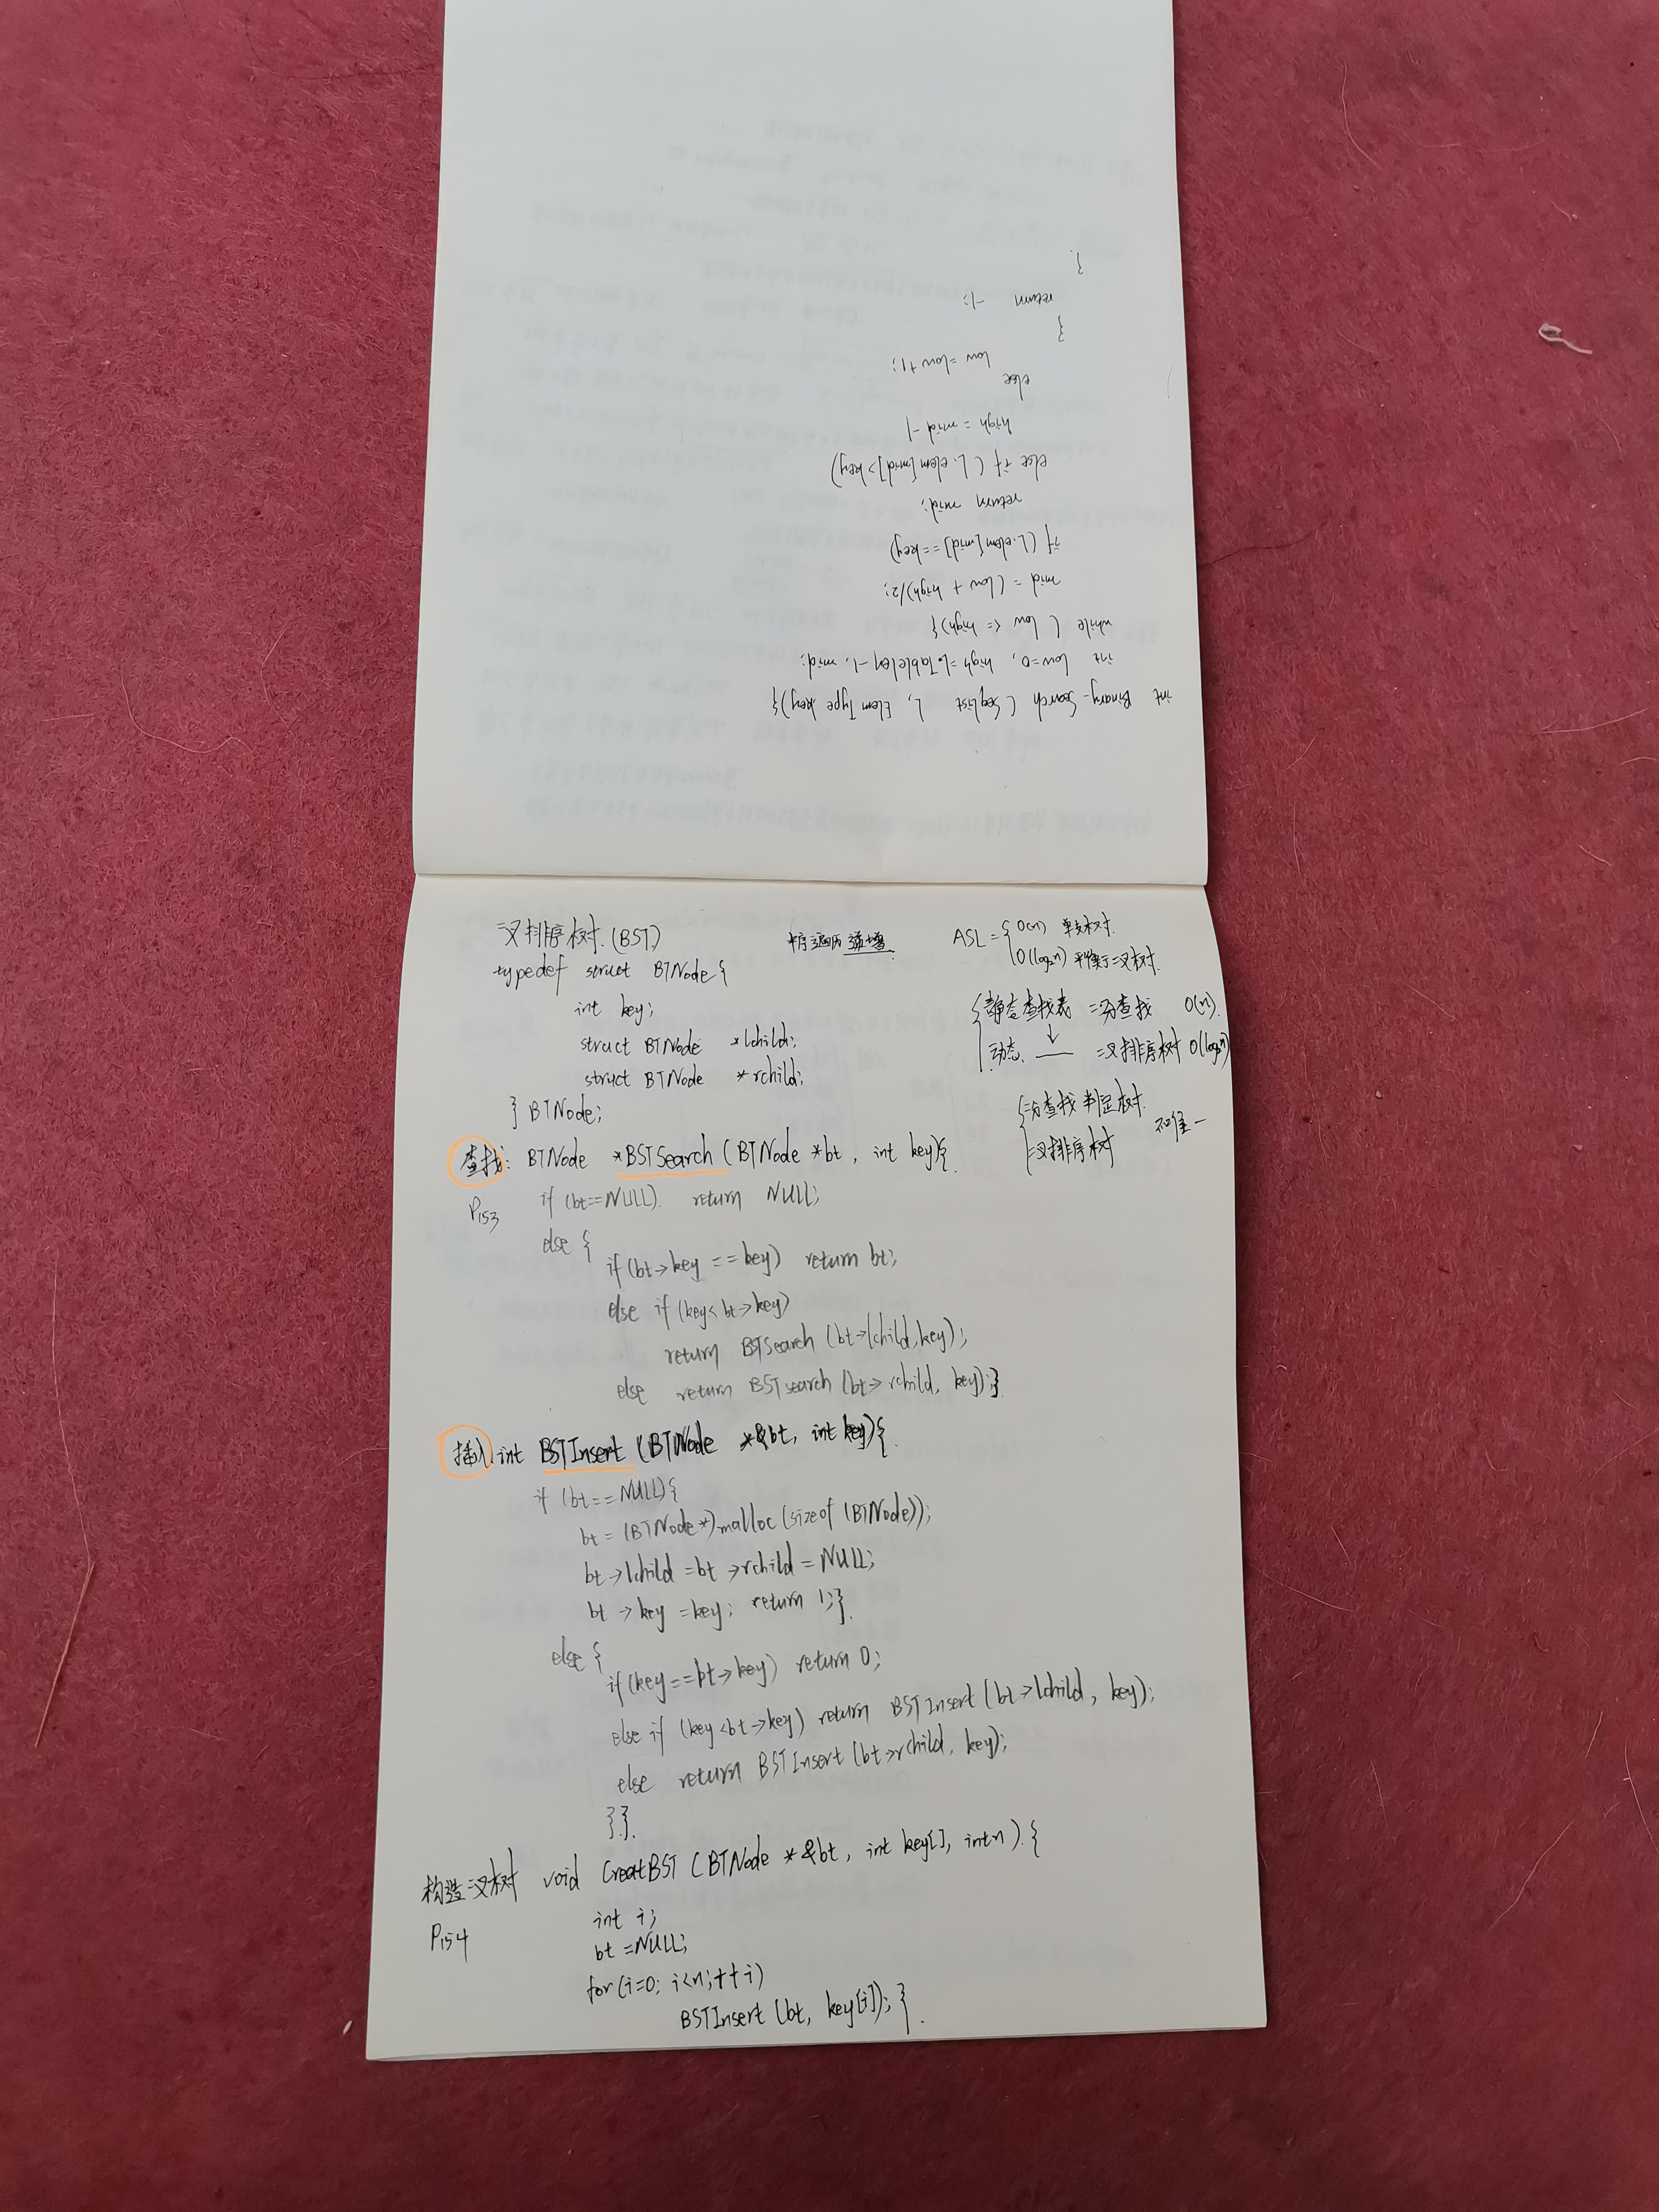 int Binary_Search ( SeqList L, ElemType key){
int low=0, high=L.TableLen-1, mid;
while ( low <= high){
mid = (low + high)/2;
if ( L.elem[mid]==key)
return mid;
else if ( L.elem[mid]>key)
high = mid-1
else
low = low+1;
}
return -1;
}
二叉排序树.(BST) 中序遍历 递增 ASL={O(n) 单支树.
typedef struct BTNode{ O(log₂n) 平衡二叉树.
int key; {静态查找表 二分查找 O(n).
struct BTNode *lchild; ↓
动态. —— 二叉排序树 O(log₂n)
struct BTNode *rchild;
} BTNode; {二分查找 判定树.
二叉排序树 不唯一
查找: BTNode *BSTSearch (BTNode *bt, int key){
P153 if (bt==NULL). return NULL;
else {
if (bt->key ==key) return bt;
else if (key<bt->key)
return BSTSearch (bt->lchild,key);
else return BSTsearch (bt->rchild, key);}
插入: int BSTInsert (BTNode *&bt, int key){
if (bt==NULL){
bt = (BTNode*)malloc(sizeof (BTNode));
bt->lchild =bt->rchild = NULL;
bt->key =key; return 1;}
else {
if (key==bt->key) return 0;
else if (key<bt->key) return BSTInsert (bt->lchild, key);
else return BSTInsert (bt->rchild, key);
}}
构造二叉树 void CreatBST (BTNode *&bt, int key[], int n).{
P154 int i;
bt =NULL;
for(i=0; i<n;++i)
BSTInsert (bt, key[i]);}